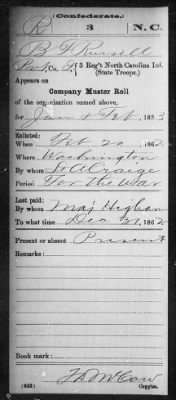 (Confederate.)
R 3 N.C.
B F Russell
Co. F, 3 Reg't North Carolina Inf.
(State Troops.)
Appears on
Company Muster Roll
of the organization named above,
for Jan & Feb, 1863
Enlisted:
When Feb 20, 1862
Where Washington
By whom Lt Craige
Period For the war
Last paid:
By whom Maj Higham
To what time Dec 31, 1862
Present or absent Present
Remarks:
Book mark:
(642)
Copyist.